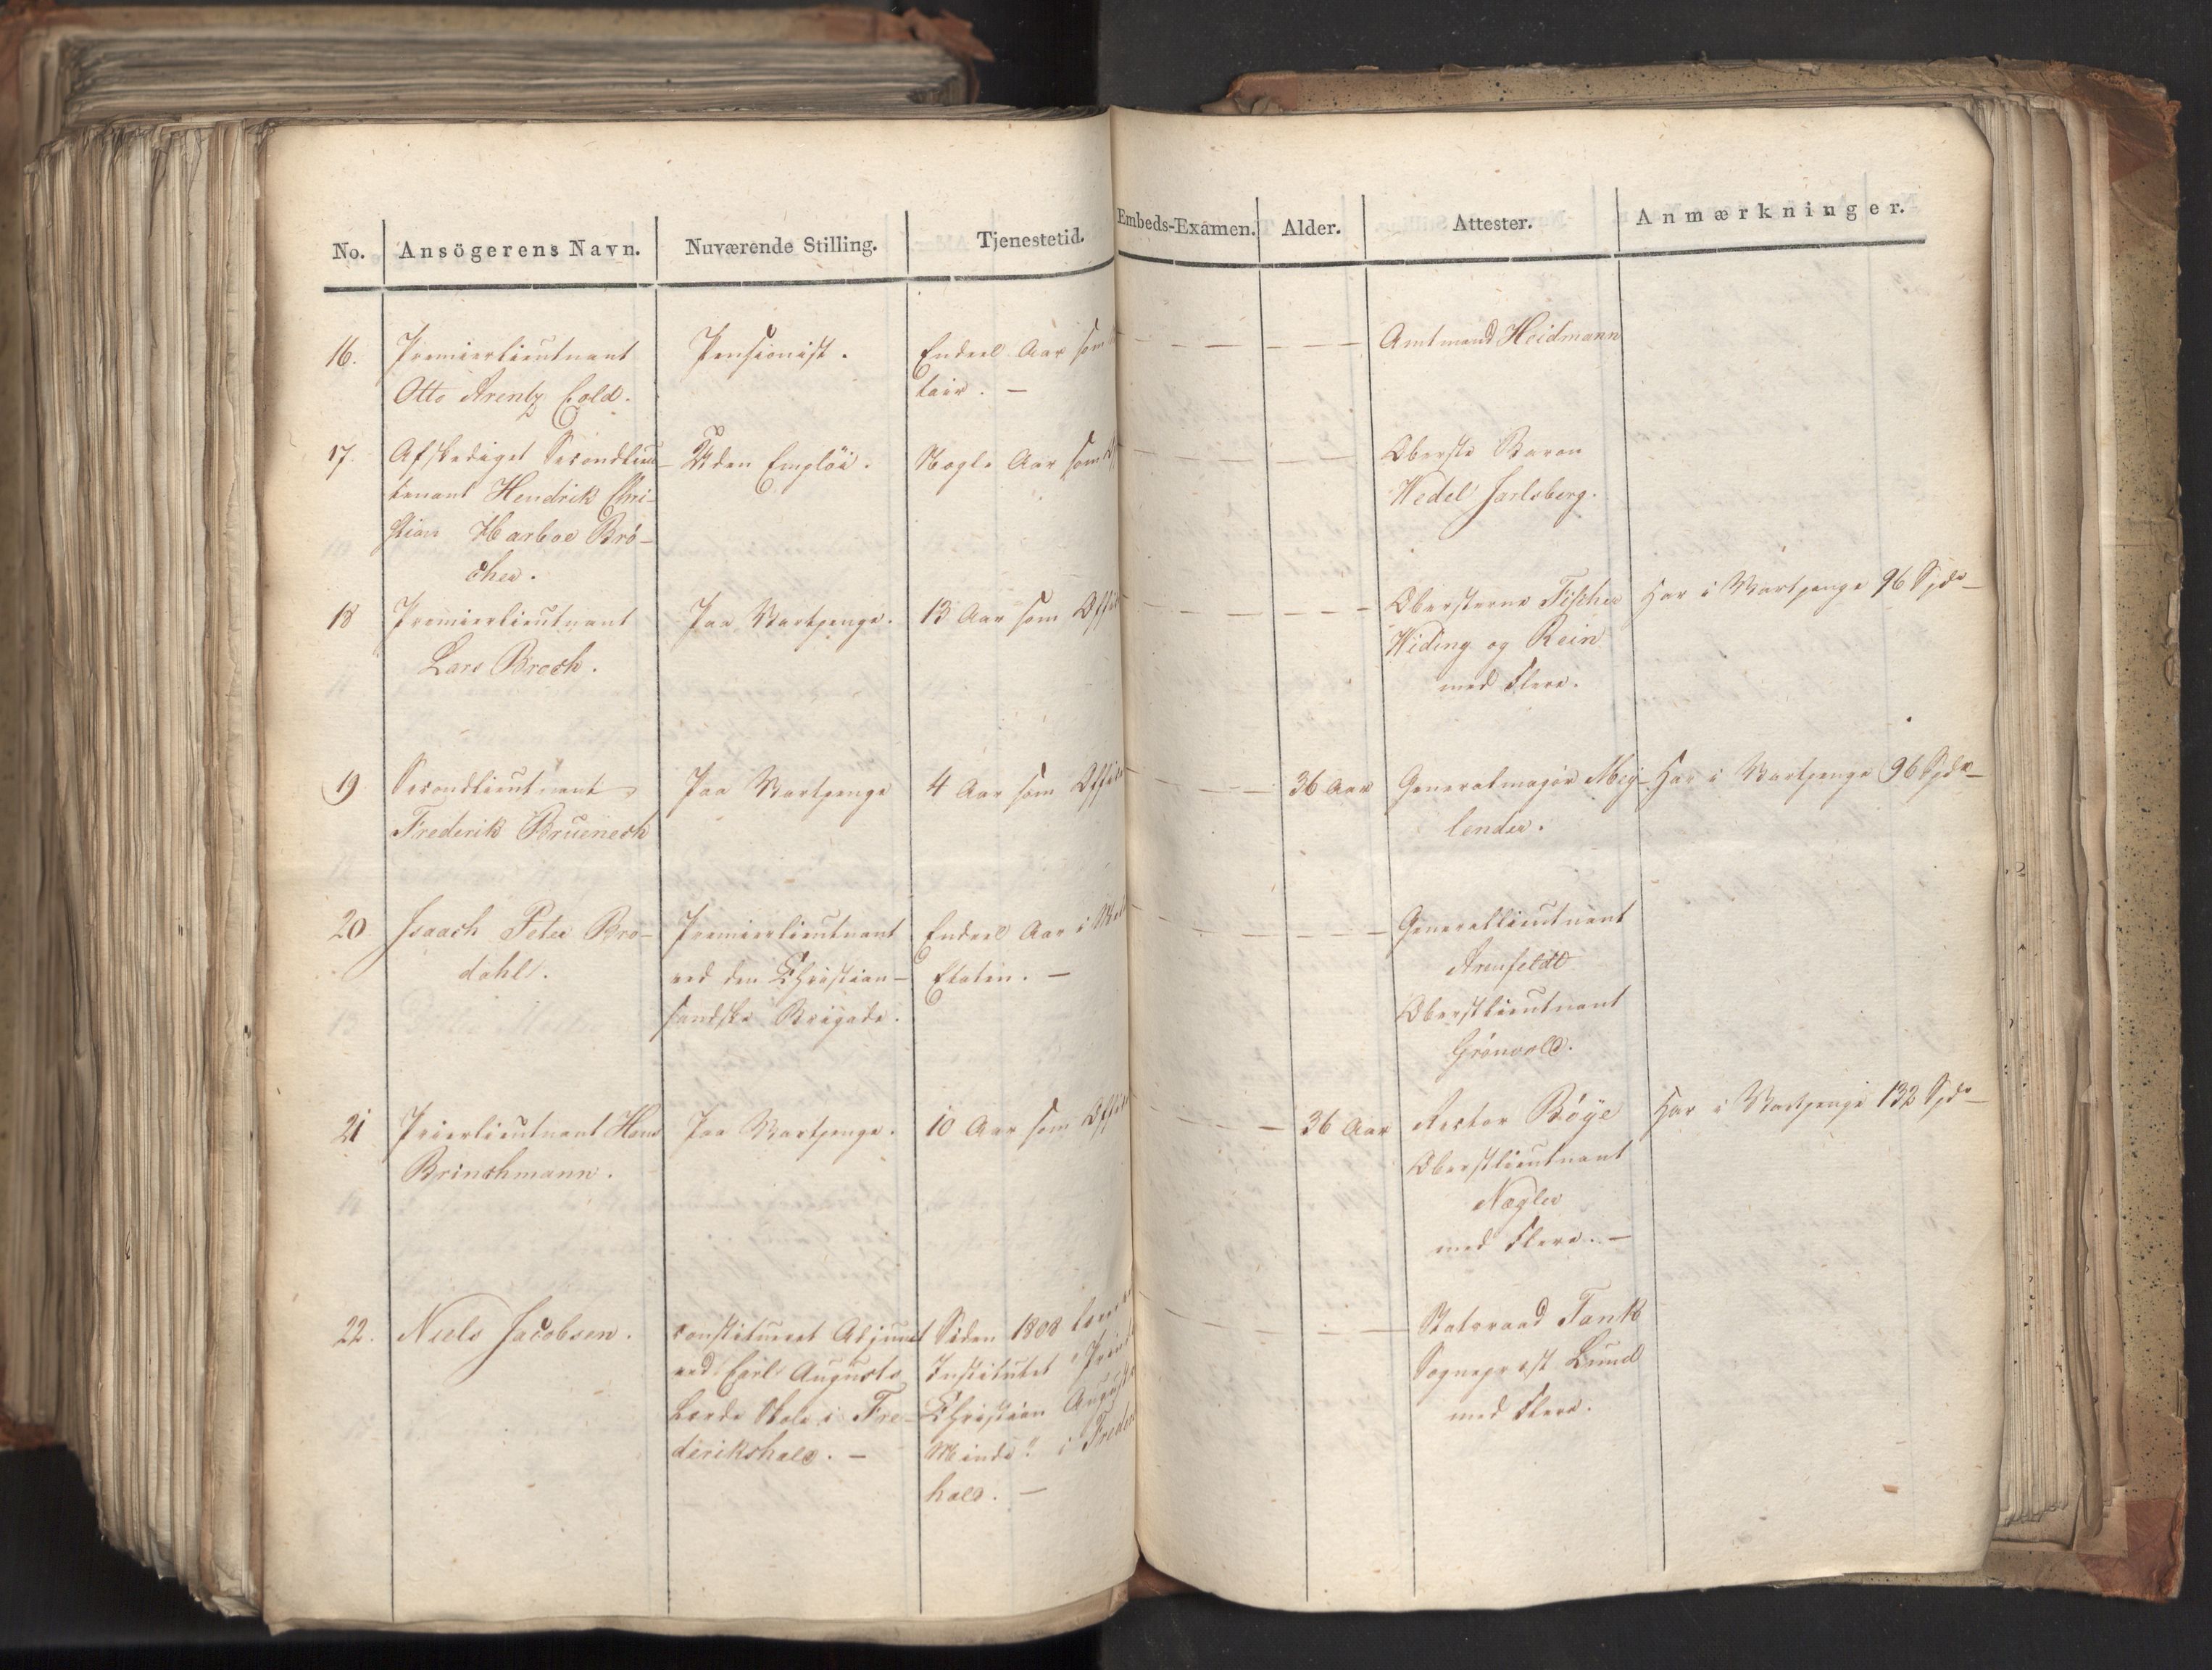 No.
Ansögerens Navn.
Nuværende Stilling.
Tjenestetid.
Embeds-Examen.
Alder.
Attester.
Anmærkninger.
16.
Premierlieutnant
Otto Arentz Cold.
Pensionist.
Endeel Aar som
tair. —
Amtmand Heidmann
17.
Afskediget Secondlieu-
tenant Hendrik Chri-
stian Harboe Brö-
cher.
Uden Emploi.
Nogle Aar som
Oberste Baron
Wedel Jarlsberg.
18
Premierlieutnant
Lars Broch.
Paa Vartpenge.
13 Aar som Offic
Obersterne Fischer
Widing og Rein
med Flere.
Har i Vartpenge 96 Spd
19
Secondlieutnant
Frederik Bruenech
Paa Vartpenge
4 Aar som Offic
36 Aar
Generalmajor Mey-
lender.
Har i Vartpenge 96 Spd
20
Isaach Peter Bro-
dahl.
Premierlieutnant
ved den Christian-
sandske Brigade.
Endeel Aar i Mil
Etaten. —
Generallieutnant
Arenfeldt
Oberstlieutnant
Grönvold.
21
Prierlieutnant Hans
Brinchmann.
Paa Vartpenge.
10 Aar som Offic
36 Aar
Rector Böye
Oberstlieutnant
Nægler
med Flere. —
Har i Vartpenge 132 Spd
22.
Niels Jacobsen.
constitueret Adjunct
ved Carl Augusts
Lærde Skole i Fre-
derikshald. —
Siden 1808
Institutet "Prinds
Christian August
Minde" i Freder
hald. —
Statsraad Tank
Sogneprest Lund
med Flere.